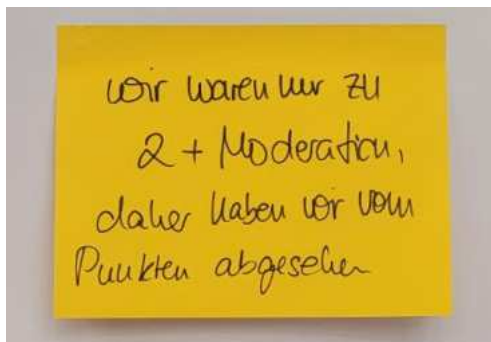 wir waren nur zu
2 + Moderation,
daher haben wir vom
Punkten abgesehen